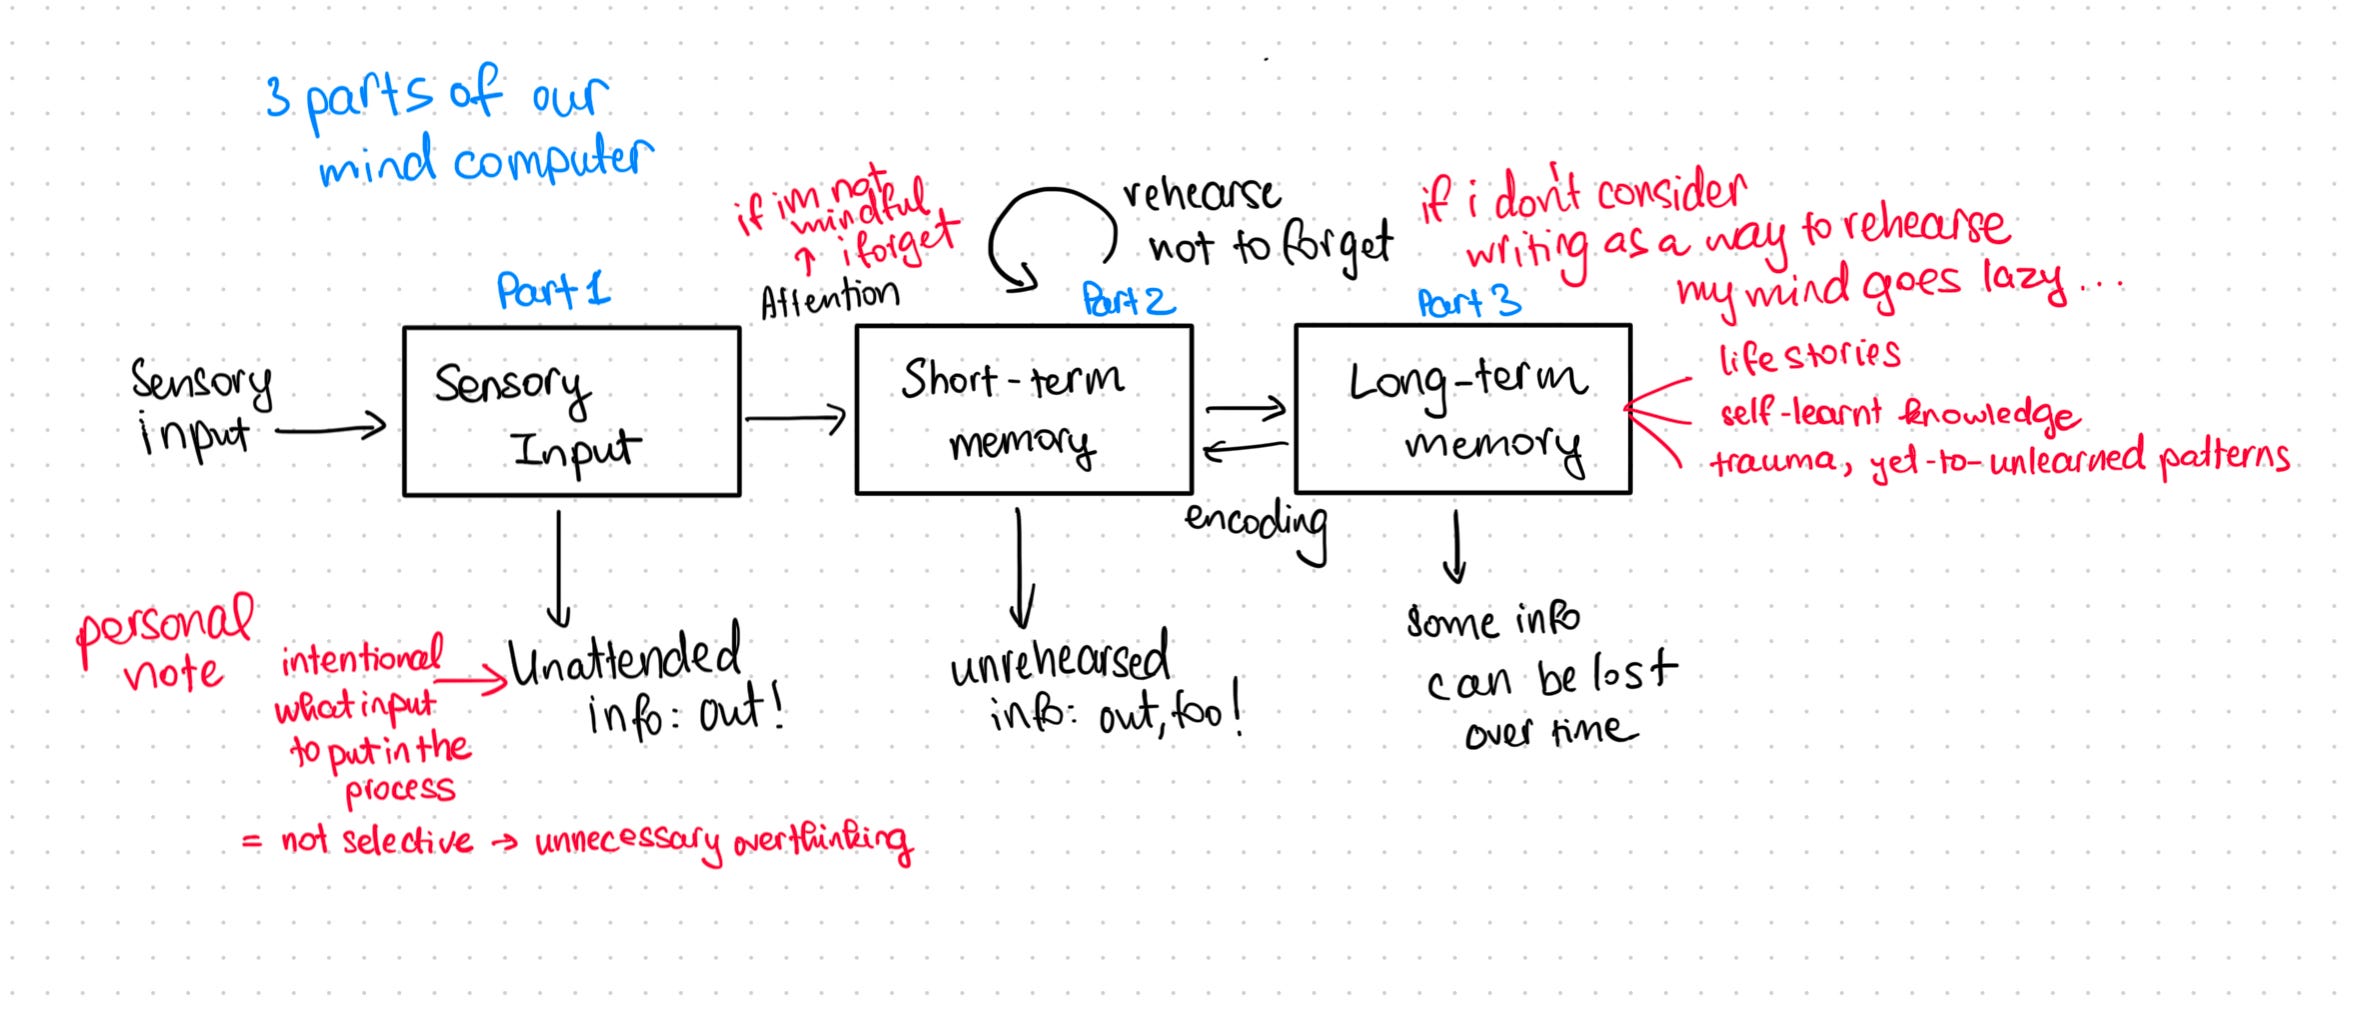 3 parts of our
mind computer
if im not
mindful
↑ i forget
Attention
rehearse
not to forget
if i don't consider
writing as a way to rehearse
my mind goes lazy...
Part 1
Part 2
Part 3
Sensory
input
Sensory
Input
Short-term
memory
Long-term
memory
life stories
self-learnt knowledge
trauma, yet-to-unlearned patterns
encoding
personal
note
intentional
what input
to put in the
process
= not selective → unnecessary overthinking
Unattended
info: out!
unrehearsed
info: out, too!
some info
can be lost
over time